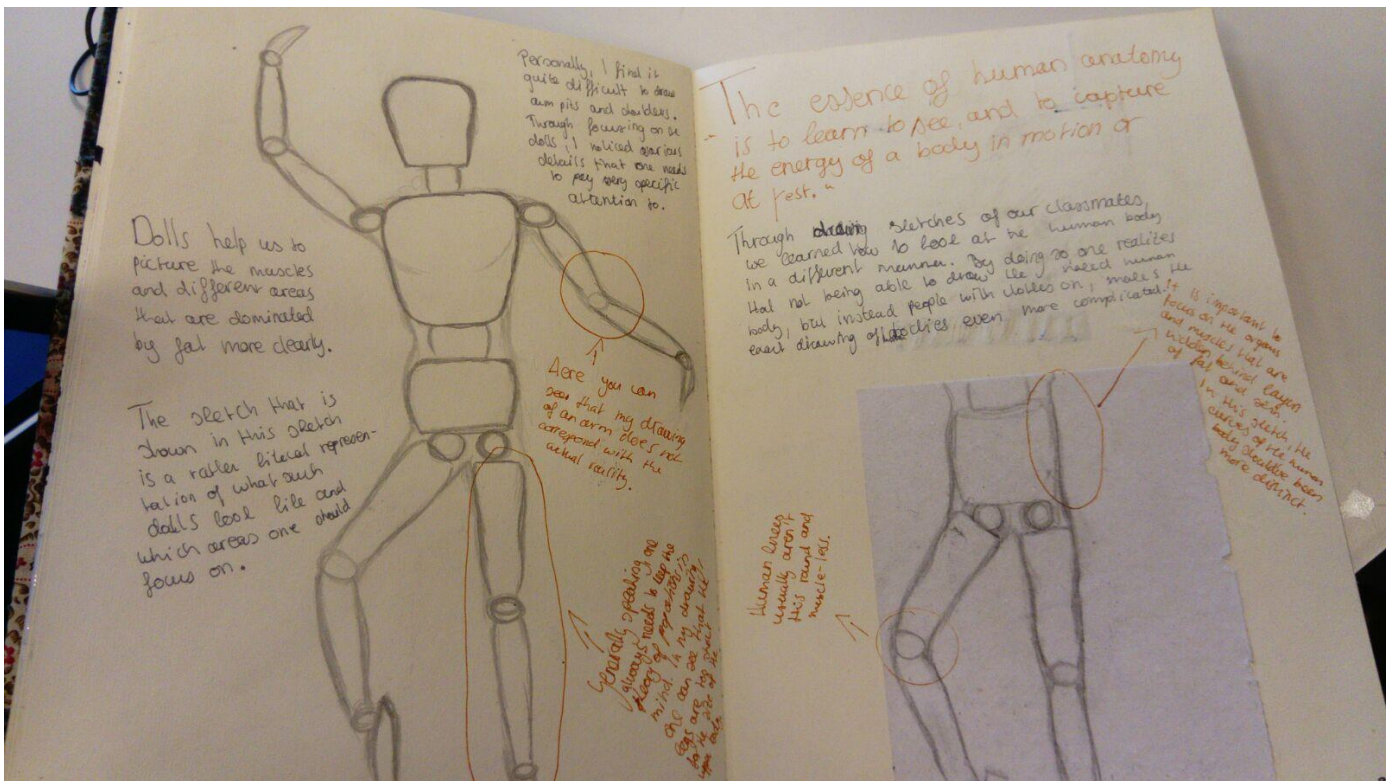 Personally, I find it
quite difficult to draw
arm pits and shoulders.
Through focusing on the
dolls, I noticed various
details that one needs
to pay very specific
attention to.
Dolls help us to
picture the muscles
and different areas
that are dominated
by fat more clearly.
The sketch that is
shown in this sketch
is a rather literal represen-
tation of what such
dolls look like and
which areas one should
focus on.
Here you can
see that my drawing
of an arm does not
correspond with the
actual reality.
Generally speaking
one always needs to keep the
theory of proportions in
mind. In my drawing,
one can see that the
legs are too short
for the size of the
upper body.
The essence of human anatomy
is to learn to see, and to capture
the energy of a body in motion or
at rest."
Through drawing sketches of our classmates,
we learned how to look at the human body
in a different manner. By doing so one realizes
that not being able to draw the naked human
body, but instead people with clothes on, makes the
exact drawing of bodies even more complicated.
It is important to
focus on the organs
and muscles that are
hidden behind layers
of fat and skin.
In this sketch, the
curves of the human
body should've been
more distinct.
Human knees
usually aren't
this round and
muscle-less.